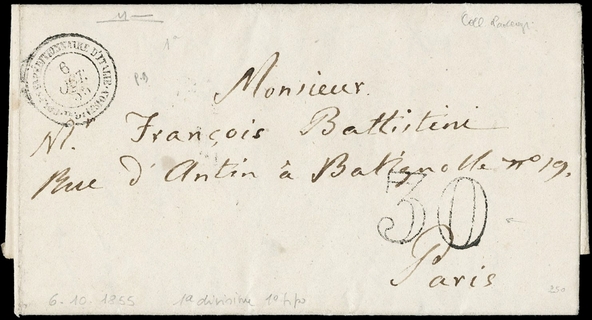 11 —
Coll
1ª
6
OCT.
55
Monsieur
M. François Battistini
Rue d'Antin à Batignolle nº 19.
30
Paris
6.10.1855
1ª divisione 1º tipo
250